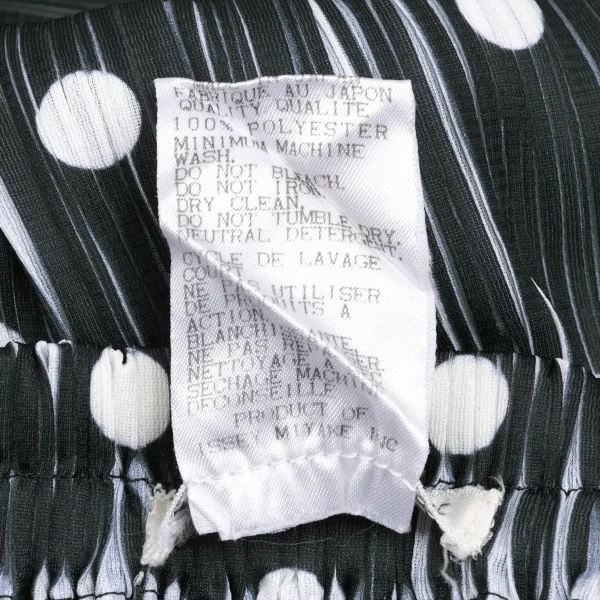 FABRIQUE AU JAPON
QUALITY QUALITE
100% POLYESTER
MINIMUM MACHINE
WASH.
DO NOT BLEACH.
DO NOT IRON.
DRY CLEAN.
DO NOT TUMBLE DRY.
NEUTRAL DETERGENT.
CYCLE DE LAVAGE
COURT.
NE PAS UTILISER
DE PRODUITS A
ACTION
BLANCHISSANTE.
NE PAS REPASSER.
NETTOYAGE A SEC.
SECHAGE MACHINE
DECONSEILLE
PRODUCT OF
ISSEY MIYAKE INC